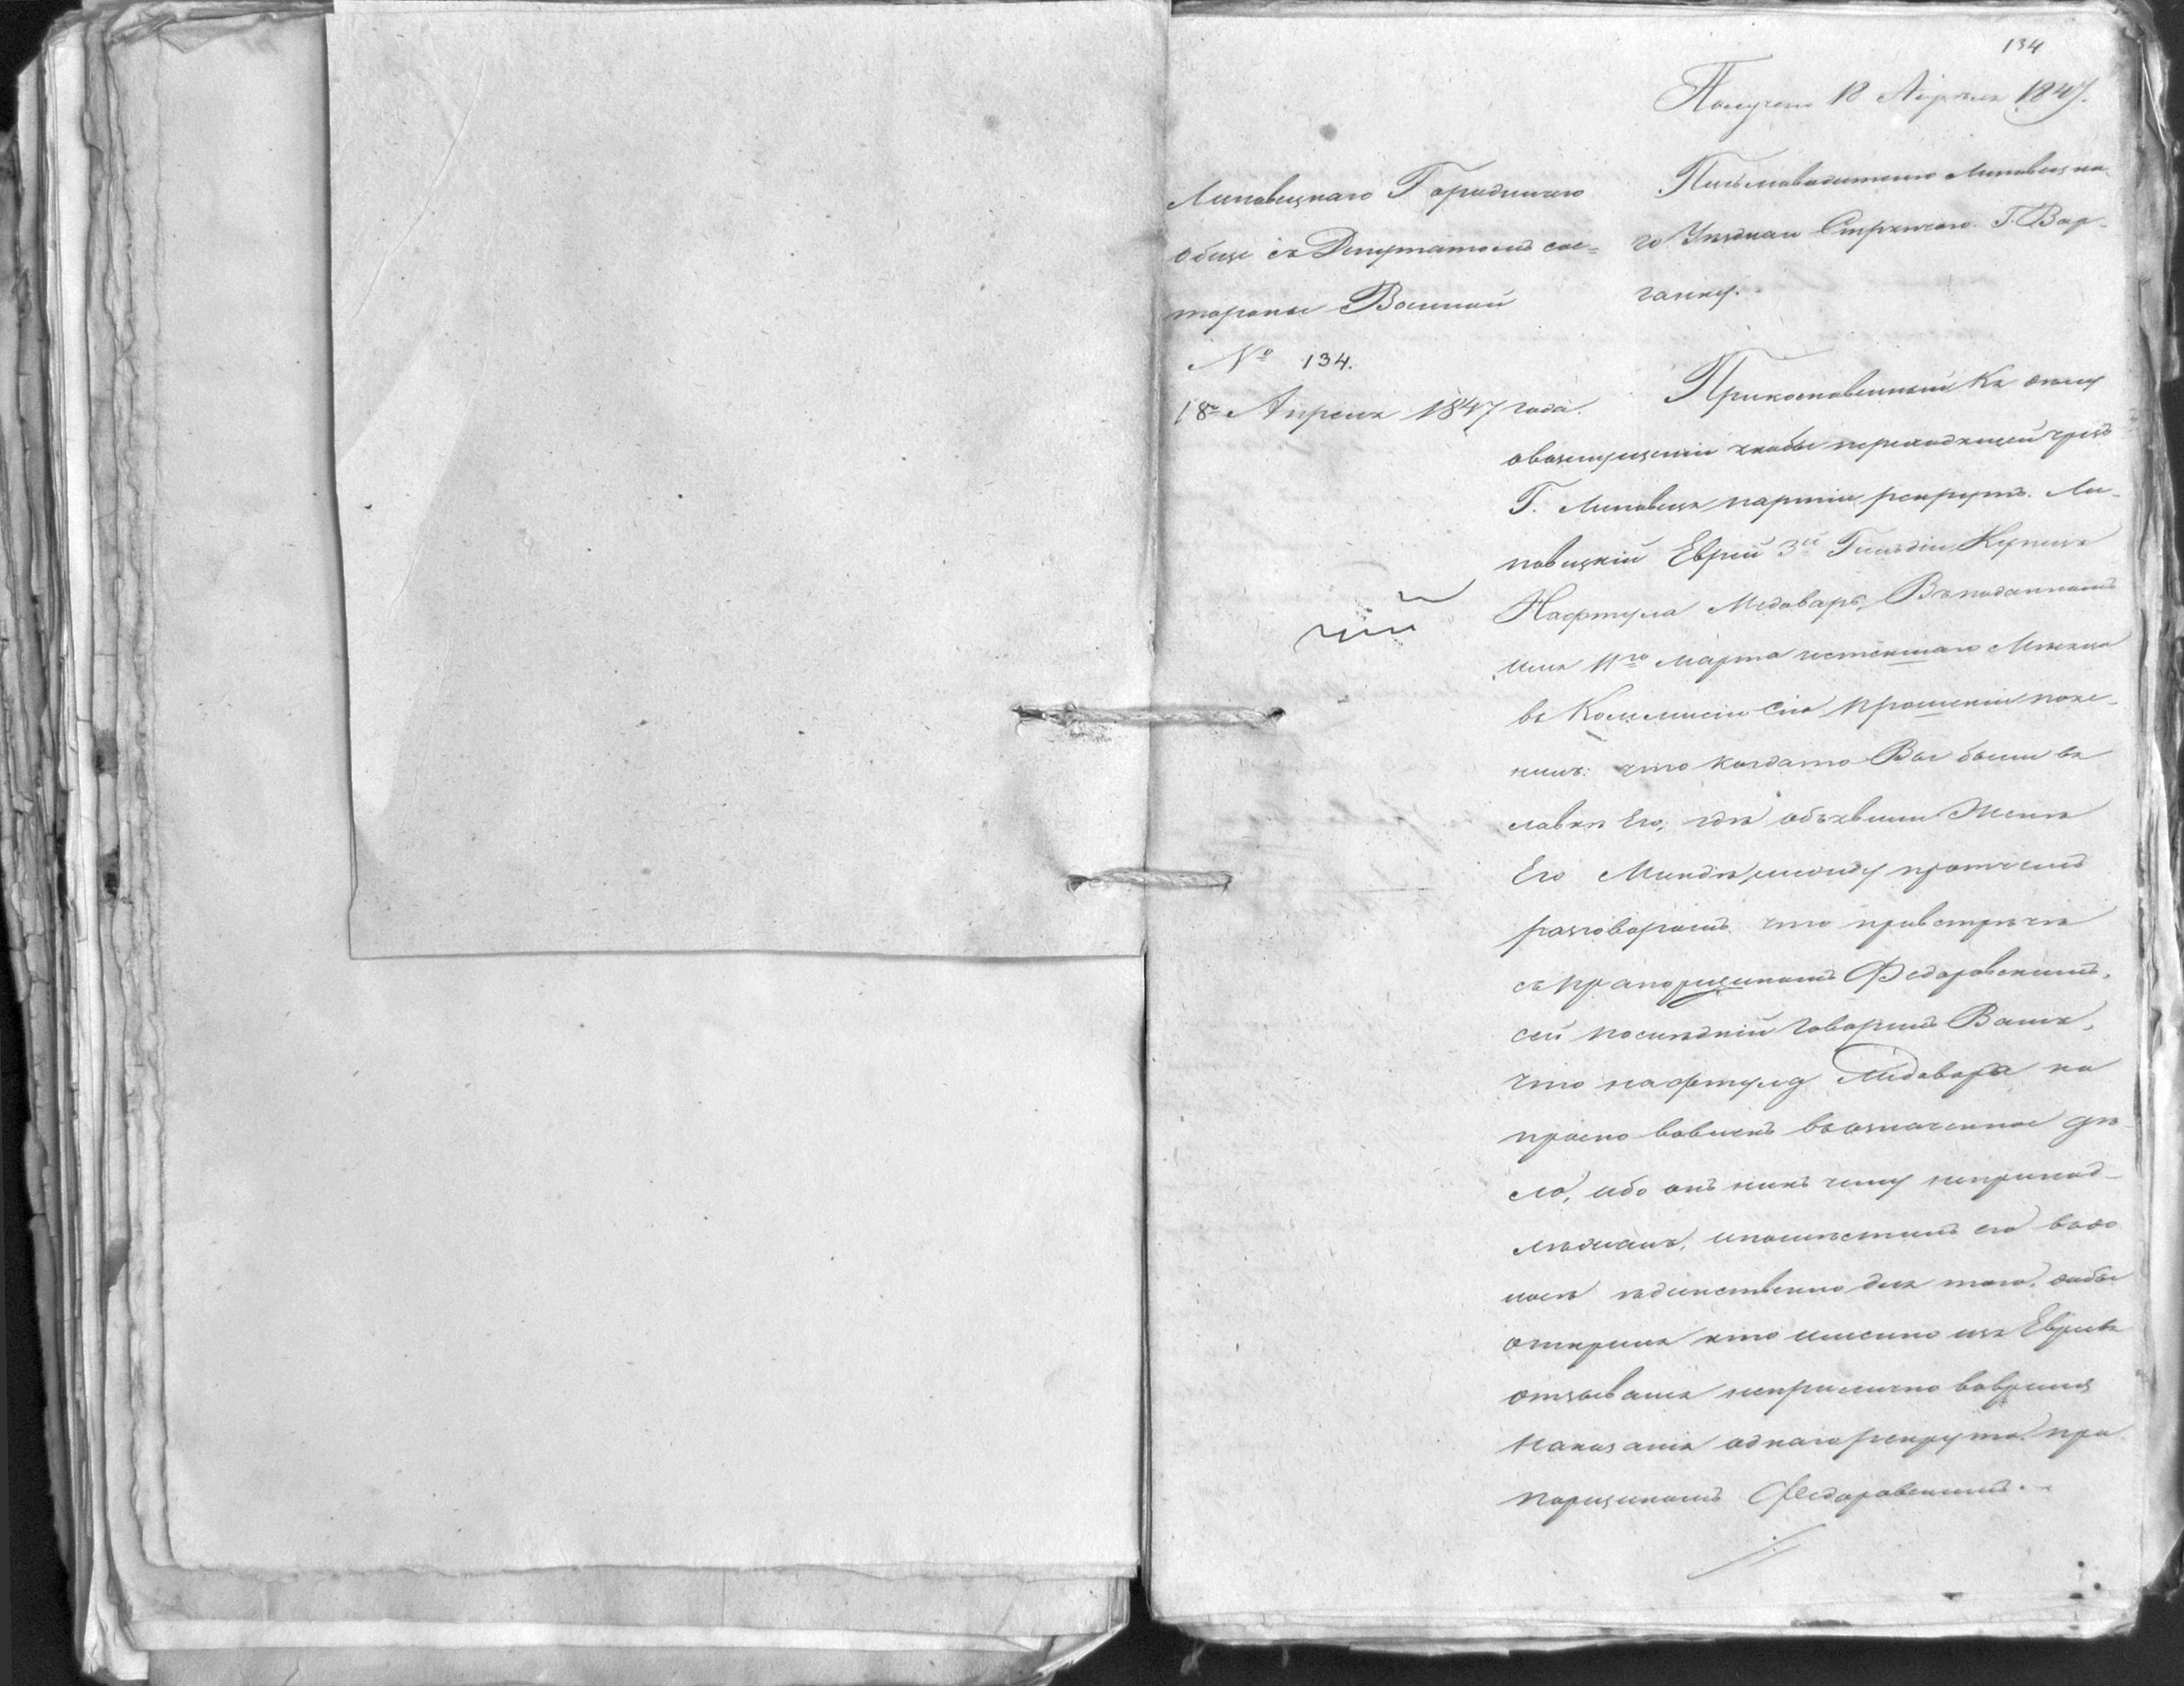 134
Получено 18 Апреля 1847.
Липовецкаго Городничаго
обще съ Депутатомъ сос=
тороны Военной
№ 134.
18 Апреля 1847 года.
Письмоводителю Липовецка
го Уезднаго Стряпчего Г. Вар-
ганку.
Прикосновенный къ делу
овозмущении якобы переходящей чрезъ
Г. Липовецъ партии рекрутъ. Ли-
повецкій Еврей 3й Гильдіи Купецъ
Нафтула Медоваръ, Въподанномъ
имъ 11го Марта истекшаго Месяца
въ Коммисію сію прошеніи пояс-
нилъ: что когдато Вы были въ
лавке Его, где объявили Жене
Его Минде, между протчемъ
разговоромъ что привстрече
съпрапорщикомъ Федоровскимъ,
сей последній говорилъ Вамъ,
что нафтулу Медовара на
прасно вовлекъ возначенное де
ло, ибо онъ никъ чему неринад-
лежалъ, ипоместилъ его
единственно для того, дабы
открылъ кто именно изъ Евреевъ
отзывался неприлично вовремя
наказанія однаго рекрута, пра
порщикомъ Федоровскимъ.